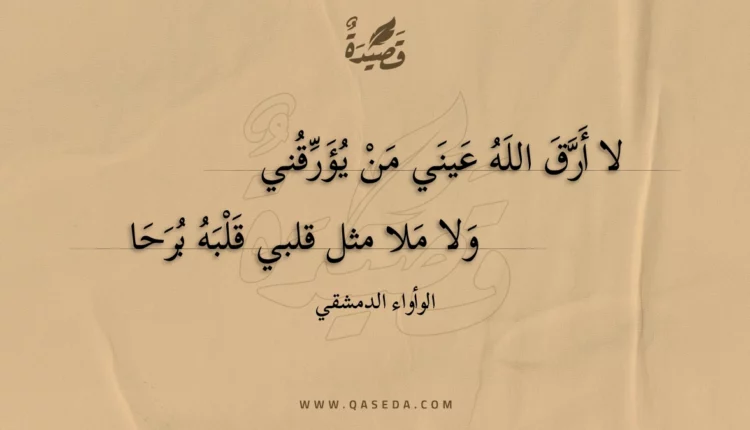 قَصِيْدَةٌ
لا أَرَّقَ اللَهُ عَينَي مَنْ يُؤَرِّقُني
وَلا مَلا مثل قلبي قَلْبَهُ بُرَحَا
الوأواء الدمشقي
WWW.QASEDA.COM